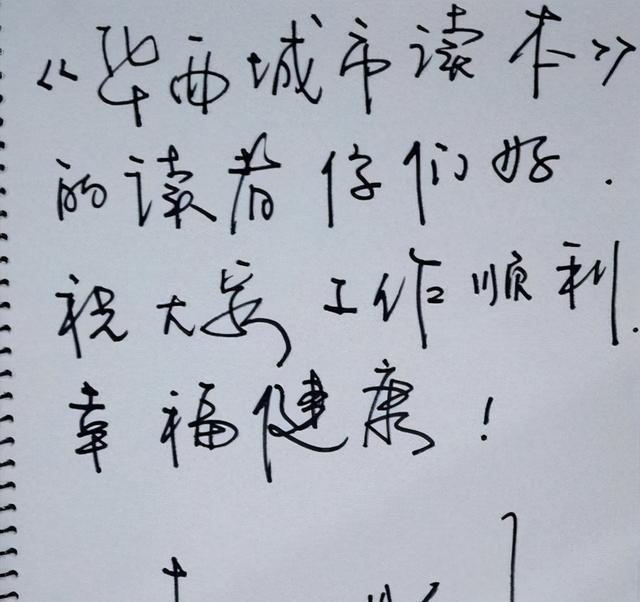 《华西城市读本》
的读者你们好.
祝大家工作顺利.
幸福健康!